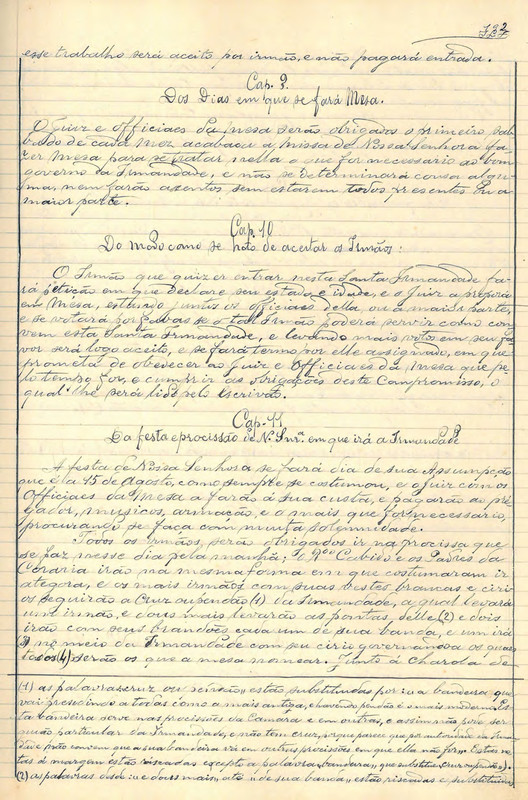 132
esse trabalho será aceito por irmão, e não pagará entrada.
Cap. 9.
Dos Dias em que se fará Mesa.
O Juiz e Officiaes da Mesa serão obrigados o primeiro sab-
bado de cada mez acabada a missa de Nossa Senhora fa-
zer Mesa para se tratar nella o que for necessario ao bom
governo da Irmandade, e não se determinará cousa algu-
ma, nem farão assentos sem estarem todos presentes ou a
maior parte.
Cap. 10
Do modo como se hão de aceitar os Irmãos:
O Irmão que quizer entrar nesta Santa Irmandade fa-
rá petição em que declare seu estado e idade, e o Juiz a proporá
em Mesa, estando juntos os officiaes della ou a maior parte,
e se votará por favas se o tal Irmão poderá servir como con-
vem esta Santa Irmandade, e levando mais votos em seu fa-
vor será logo aceito, e se fará termo por elle assignado, em que
prometta de obedecer ao Juiz e Officiaes da Mesa que pe-
lo tempo for, e cumprir as obrigações deste Compromisso, o
qual lhe será lido pelo Escrivão.
Cap. 11
Da festa e procissão de N. Snrª. em que irá a Irmandade
A festa de Nossa Senhora se fará dia de sua Assumpção
que é a 15 de Agosto, como sempre se costumou, e o Juiz com os
Officiaes da Mesa a farão á sua custa, e pagarão ao pré-
gador, musicos, armação, e o mais que for necessario,
procurando se faça com muita solemnidade.
Todos os irmãos, serão obrigados ir na procissa que
se faz nesse dia pela manhã; o Cabido e os Padres da
Coraria irão na mesma forma em que costumaram ir
ategora, e os mais irmãos com suas vestes brancas e ciri-
os seguirão a Cruz ou pendão (1) da Irmandade, a qual levará
um irmão, e dous mais levarão as pontas, delle (2) e dois
irão com seus brandões cada um de sua banda, e um irá
(3) no meio da Irmandade com seu cirio governando os quaes
todos (4) serão os que a mesa nomear; Junto á charola de
(1) as palavras «cruz ou pendão» estão substituidas por: «a bandeira que
vai precedindo a todas como a mais antiga, havendo pendão é o mais moderno. Es-
ta bandeira serve nas procissões da Camara e em outras, e assim não pode ser
guião particular da Irmandade, e não tem cruz, porque parece que por autoridade da Irman-
dade e não convem que a sua bandeira vá em outras procissões em que ella não for». Estas no-
tas á margem estão riscadas excepto a palavra «bandeira», que substitue «cruz ou pendão».
(2) as palavras desde: «e dous mais», até «de sua banda», estão riscadas e substituidas